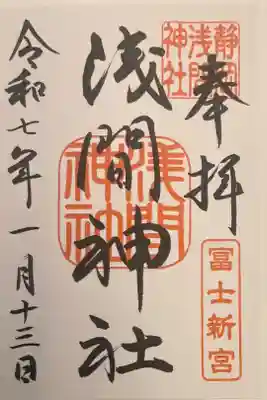 奉拝
静岡浅間神社
富士新宮
浅間神社
浅間神社
令和七年一月十三日